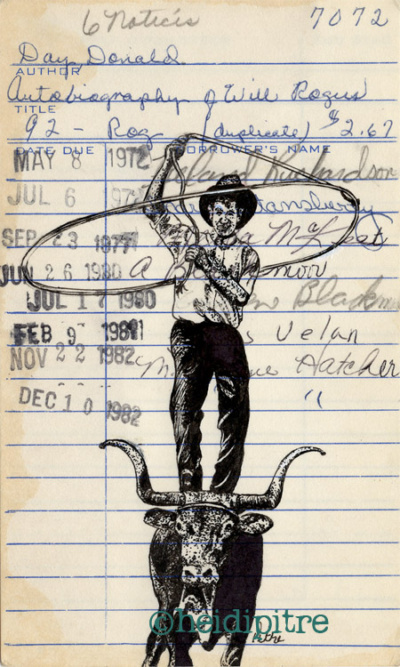 6 Notices 7072
Day, Donald
AUTHOR
Autobiography of Will Rogers
TITLE
92 - Rog (duplicate) $2.67
DATE DUE BORROWER'S NAME
MAY 8 1972 land Richardson
JUL 6 197 tansberry
SEP 23 1977 a Mc
JUN 26 1980 A
JUL 17 1980 Blackm
FEB 9 1981 s Velan
NOV 22 1982 M ue Hatcher
DEC 10 1982 "
©heidipitre
Pitre